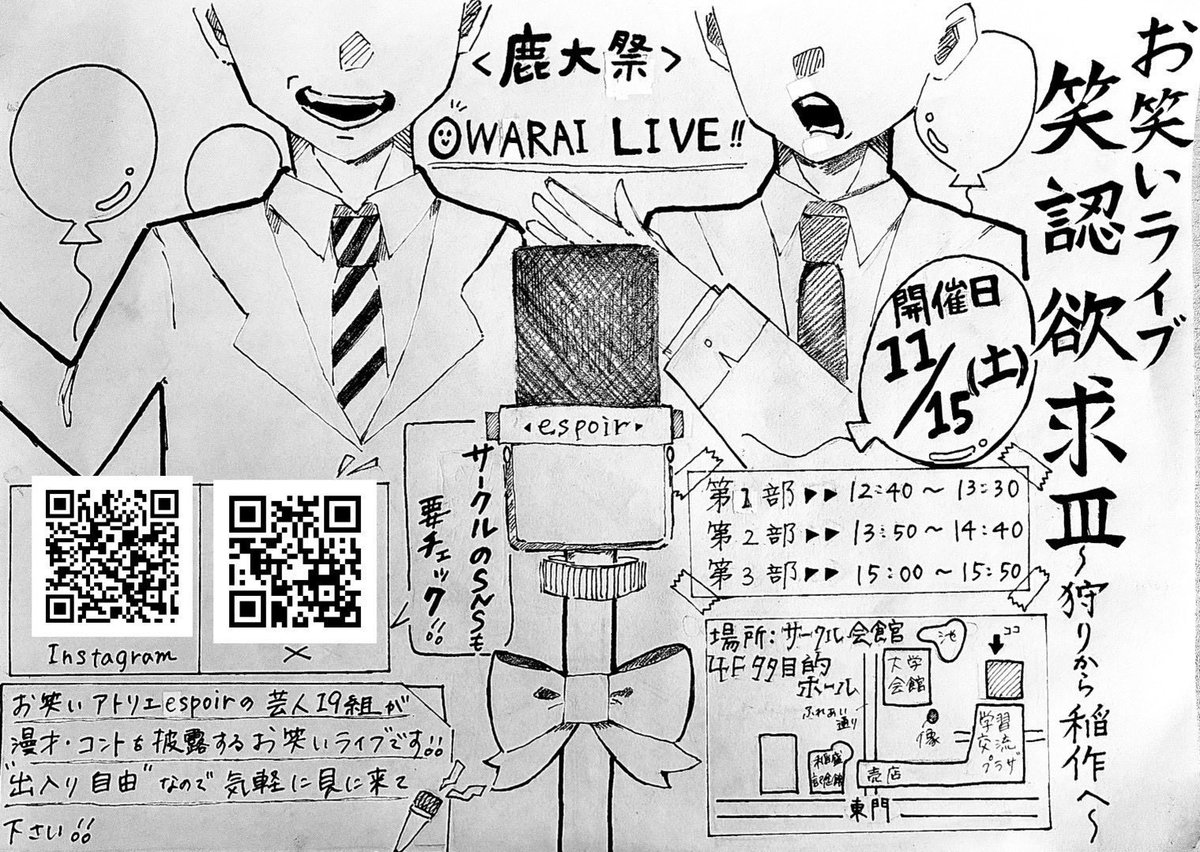 <鹿大祭>
OWARAI LIVE!!
お笑いライブ
笑認欲求皿
~狩りから稲作へ~
開催日
11/15(土)
espoir
サークルのSNSも
要チェック!!
第1部▶▶12:40~13:30
第2部▶▶13:50~14:40
第3部▶▶15:00~15:50
場所:サークル会館
4F多目的
ホール
ふれあい
通り
大学
会館
池
ココ
像
学習
交流
プラザ
稲盛
記念館
売店
東門
Instagram
X
お笑いアトリエespoirの芸人19組が
漫才・コントを披露するお笑いライブです!!
"出入り自由"なので気軽に見に来て
下さい!!